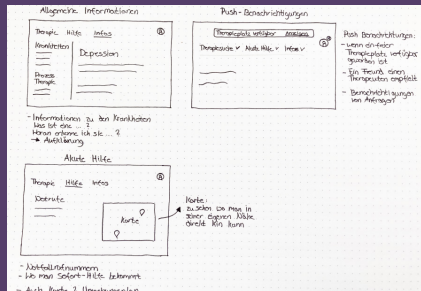 Allgemeine Informationen
Therapie Hilfe Infos
Krankheiten
Depession
Prozess
Therapie
- Informationen zu den Krankheiten
Was ist eine ... ?
Woran erkenne ich sie ... ?
→ Aufklärung
Push-Benachrichtigungen
Therapieplatz verfügbar Anzeigen
Therapiesuche Akute Hilfe Infos
Push Benachrichtungen:
- wenn ein
Therapieplatz verfügbar
geworden ist
- Ein Freund einen
Therapeuten empfielt
- Benachrichtigungen
von Anfragen
Akute Hilfe
Therapie Hilfe Infos
Notrufe
Karte
Karte:
zu sehen wo man in
seiner eigenen Nähe
direkt hin kann
- Notfallrufnummern
- Wo man Sofort-Hilfe bekommt